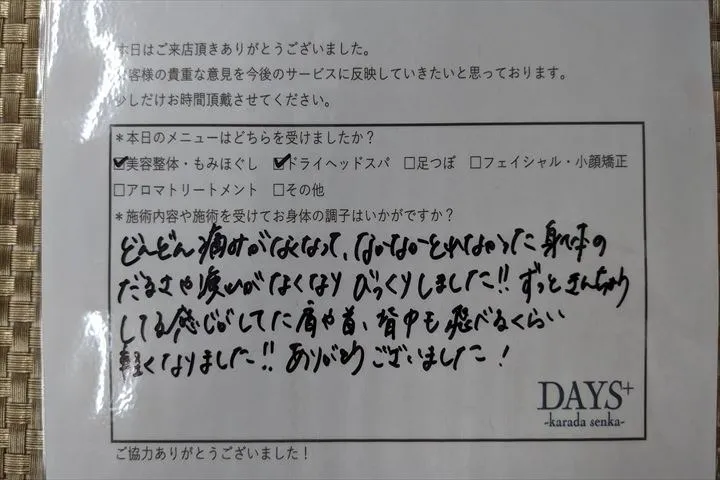 本日はご来店頂きありがとうございました。
お客様の貴重な意見を今後のサービスに反映していきたいと思っております。
少しだけお時間頂戴させてください。
＊本日のメニューはどちらを受けましたか？
☑美容整体・もみほぐし ☑ドライヘッドスパ □足つぼ □フェイシャル・小顔矯正
□アロマトリートメント □その他
＊施術内容や施術を受けてお身体の調子はいかがですか？
どんどん痛みがなくなって、なかなかとれなかった身体の
だるさや重いがなくなりびっくりしました!! ずっときんちょう
してる感じがしてた肩や首、背中も飛べるくらい
軽くなりました!! ありがとうございました！
DAYS+
-karada senka-
ご協力ありがとうございました！